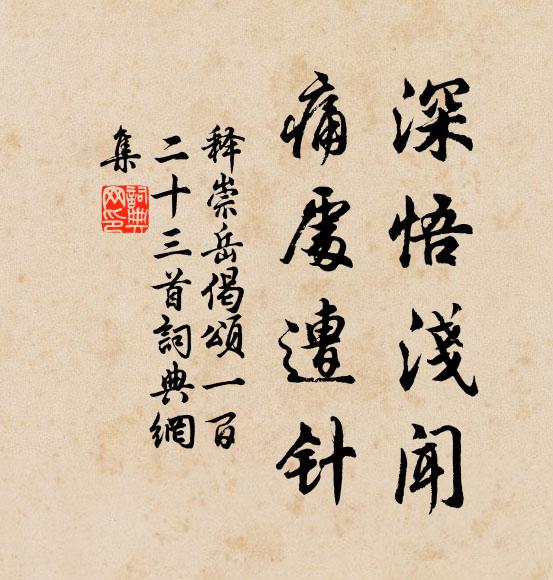 深悟淺闻
痛處遭针
释崇岳偈頌一百
二十三首詞典網
集
詞典
网印